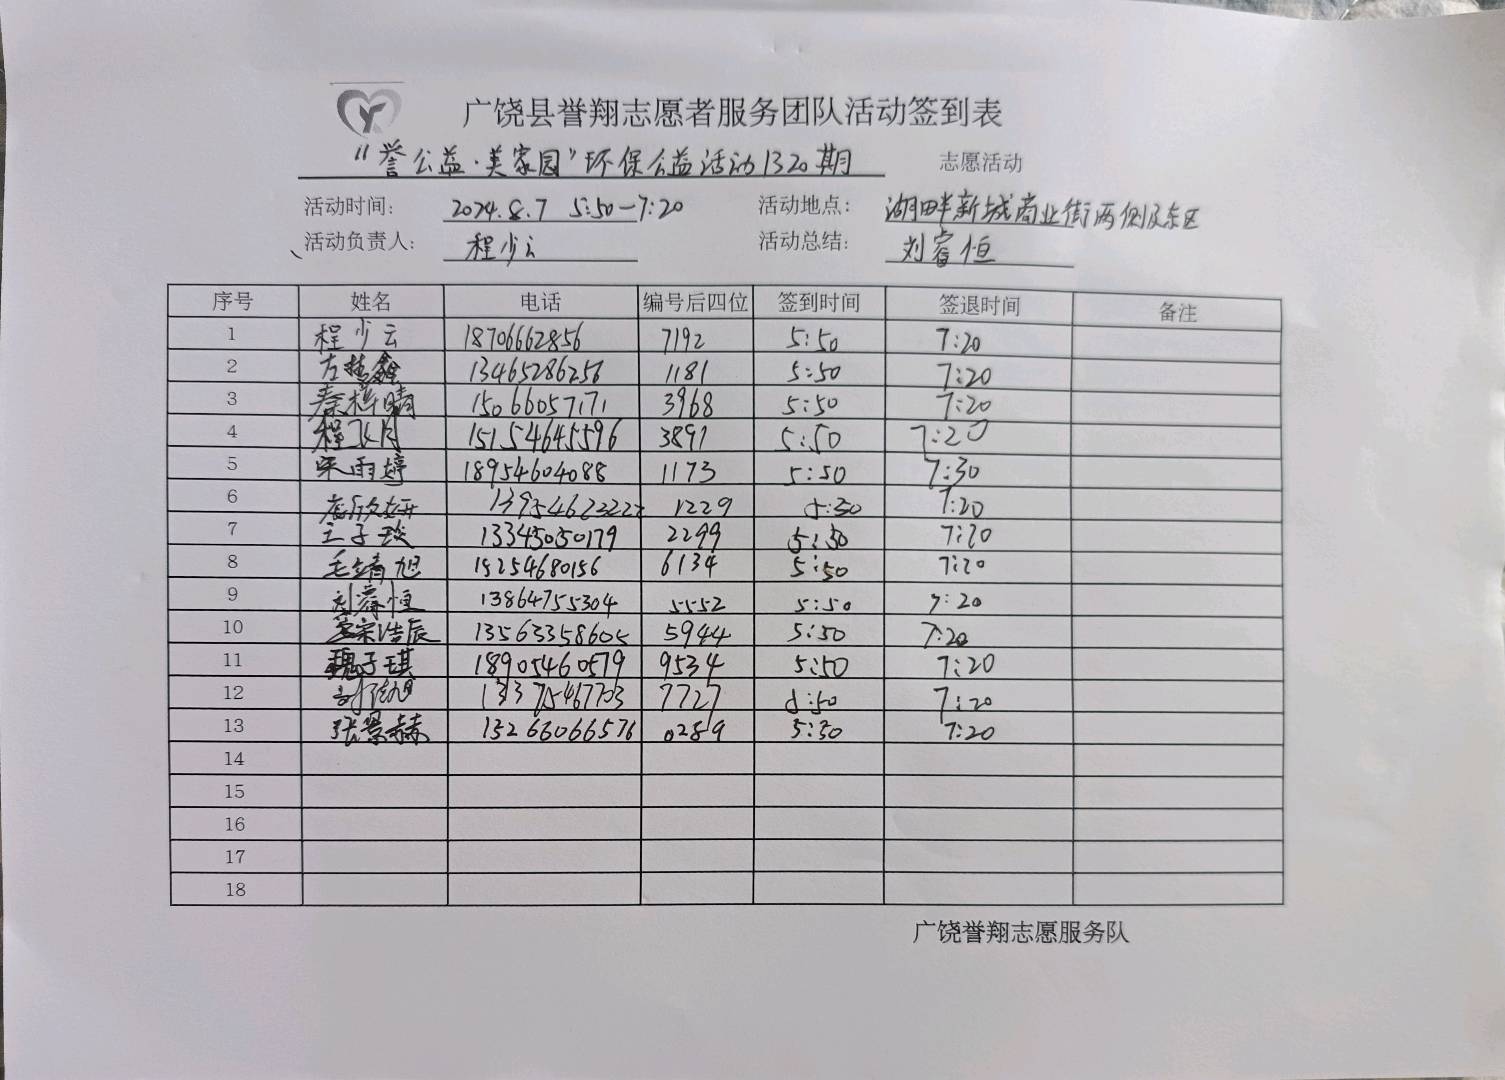 广饶县誉翔志愿者服务团队活动签到表
“誉公益·美家园”环保公益活动1320期 志愿活动
活动时间: 2024.8.7 5:50-7:20 活动地点: 湖畔新城商业街两侧及东区
活动负责人: 程少云 活动总结: 刘睿恒
序号 姓名 电话 编号后四位 签到时间 签退时间 备注
1 程少云 18706662856 7192 5:50 7:20
2 13465286256 1181 5:50 7:20
3 秦梓晴 15066057171 3968 5:50 7:20
4 15154645596 3891 5:50 7:20
5 宋雨婷 18954604088 1173 5:50 7:30
6 13954622222 1229 5:50 7:20
7 王子琰 13345050179 2299 5:50 7:20
8 毛靖旭 15254680156 6134 5:50 7:20
9 刘睿恒 13864755304 5552 5:50 7:20
10 13563358605 5944 5:50 7:20
11 魏子琪 18905460579 9534 5:50 7:20
12 13375467703 7727 5:50 7:20
13 张景赫 13266066576 0289 5:50 7:20
14
15
16
17
18
广饶誉翔志愿服务队